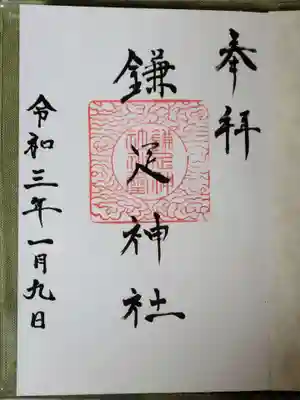 奉拝
鎌足神社
令和三年一月九日